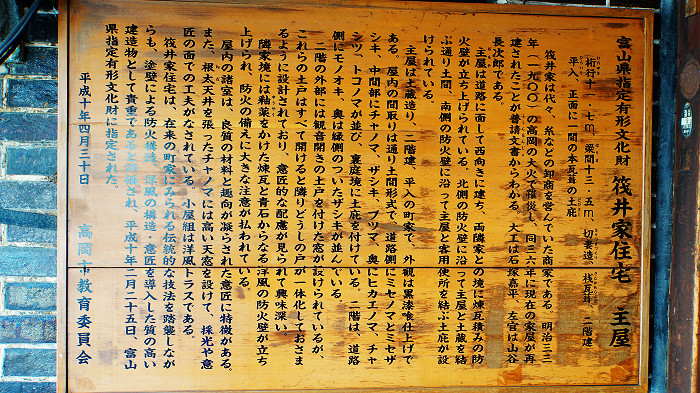 富山県指定有形文化財 筏井家住宅 主屋
桁行十一・七m、梁間十三・五m、切妻造、桟瓦葺、二階建
平入、正面に一間の本瓦葺の土庇
筏井家は代々、糸などの卸商を営んでいた商家である。明治三三
年(一九〇〇)の高岡の大火で罹災し、同三六年に現在の家屋が再
建されたことが普請文書からわかる。大工は石塚嘉平、左官は山谷
長次郎である。
主屋は道路に面して西向きに建ち、両隣家との境に煉瓦積みの防
火壁が立ち上げられている。北側の防火壁に沿って主屋と土蔵を結
ぶ通り土間、南側の防火壁に沿って主屋と専用便所を結ぶ土庇が設
けられている。
主屋は土蔵造り、二階建、平入の町家で、外観は黒漆喰仕上げで
ある。屋内の間取りは通り土間形式で、道路側にミセノマとミセザ
シキ、中間部にチャノマ、ザシキ、ブツマ、奥にヒカエノマ、チャ
シツ、トコノマが並び、裏庭境に土庇を付けている。二階は、道路
側にモノオキ、奥は縁側のついたザシキが並んでいる。
二階の外部には観音開きの土戸を付けた窓が設けられているが、
これらの土戸はすべて開けると隣りどうしの戸が一体化しておさま
るように設計されており、意匠的な配慮が見られて興味深い。
隣家境には釉薬をかけた煉瓦と青石からなる洋風の防火壁が立ち
上げられ、防火の備えに大きな注意が払われている。
屋内の諸室は、良質の材料と趣向が凝らされた意匠に特徴がある。
また、根太天井を張ったチャノマには高い天窓を設けて、採光や意
匠の面での工夫がなされている。小屋組は洋風トラスである。
筏井家住宅は、在来の町家にみられる伝統的な技法を踏襲しなが
らも、塗壁による防火構造、洋風の構造・意匠を導入した質の高い
建造物として貴重であると評価され、平成十年二月二十五日、富山
県指定有形文化財に指定された。
平成十年四月三十日
高岡市教育委員会